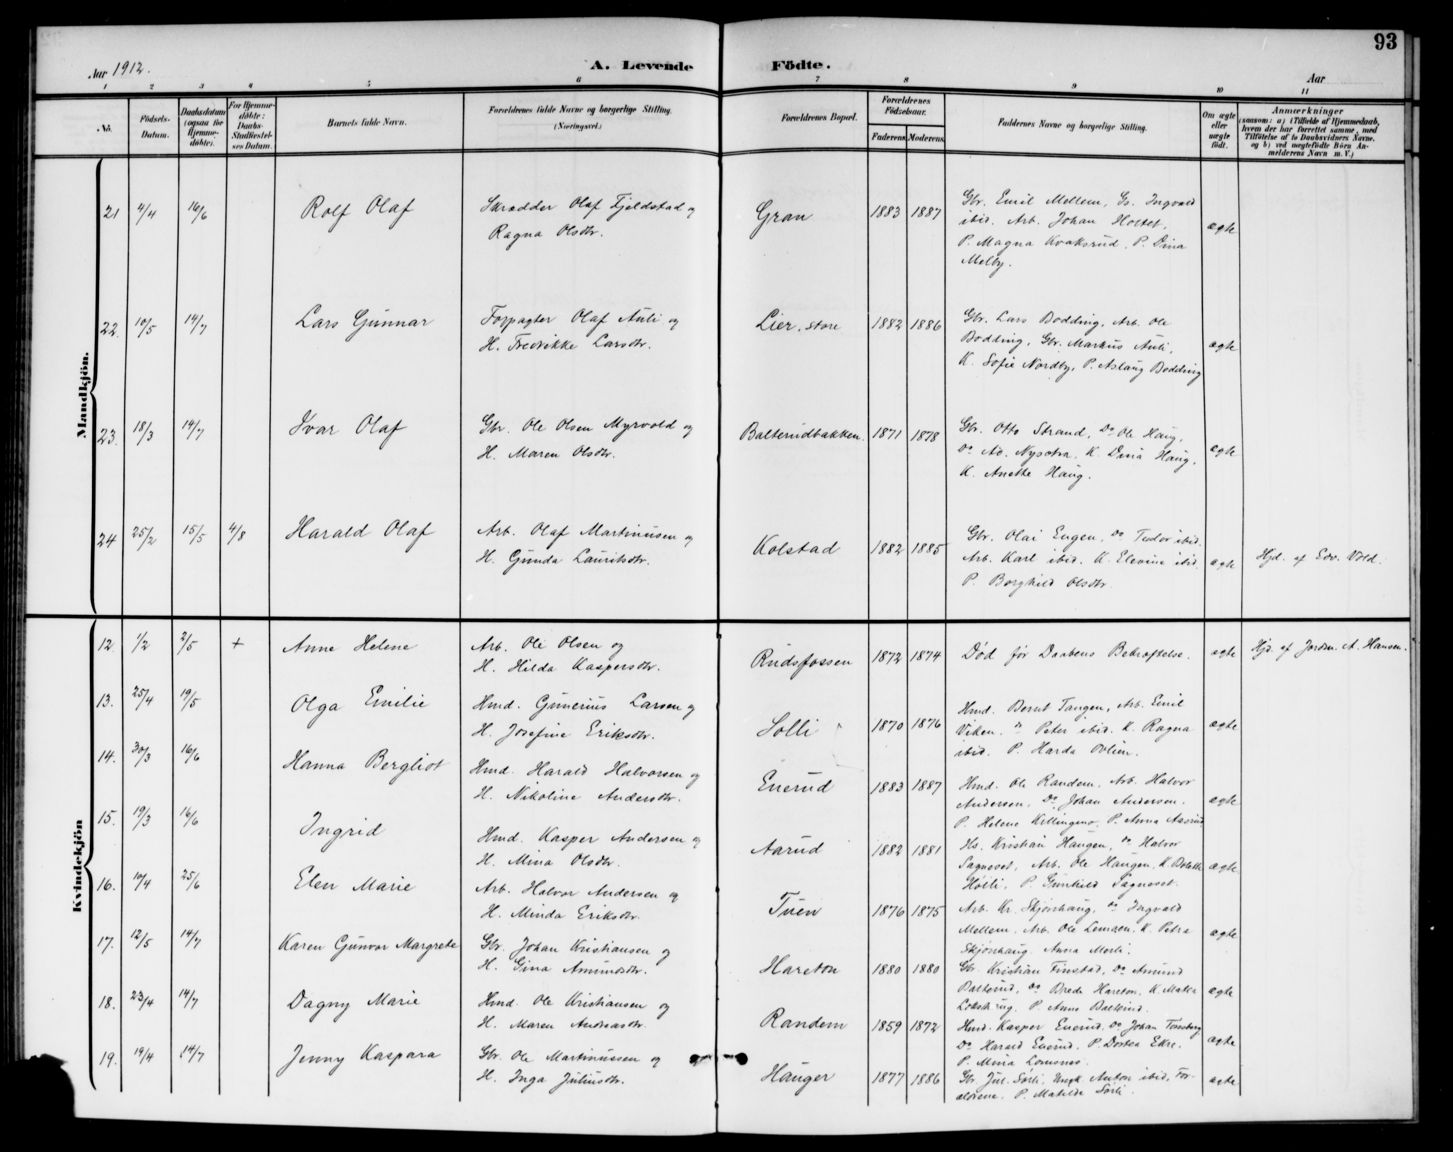 93
Aar 1912.
A. Levende Födte.
Aar
1 2 3 4 5 6 7 8 9 10 11
No.
Födsels-Datum.
Daabsdatum (ogsaa for Hjemme-döbte).
For Hjemme-döbte: Daabs-Stadfæstel-ses Datum.
Barnets fulde Navn.
Forældrenes fulde Navne og borgerlige Stilling.
(Næringsvei.)
Forældrenes Bopæl.
Forældrenes Födselsaar.
Faderens. Moderens.
Faddernes Navne og borgerlige Stilling.
Om ægte eller uægte födt.
Anmærkninger
(saasom: a) i Tilfælde af Hjemmedaab, hvem der har forrettet samme, med Tilföielse af to Daabsvidners Navne, og b) ved uægtefödte Börn An-melderens Navn m. V.)
Mandkjön.
21 4/4 16/6 Rolf Olaf
Skrædder Olaf Fjeldstad og
Ragna Olsdtr.
Gran 1883 1887
Gbr. Emil Mellem, Gs. Ingvald
ibid. Arb. Johan Holtet,
P. Magna Kvaksrud. P. Dina
Melby.
ægte
22. 10/5 14/7 Lars Gunnar
Forpagter Olaf Auli og
H. Fredrikke Larsdtr.
Lier, store 1882 1886
Gbr. Lars Bodding, Arb. Ole
Bodding, Gbr. Markus Auli,
K. Sofie Nordby, P. Aslaug Bodding
ægte
23. 18/3 14/7 Ivar Olaf
Gbr. Ole Olsen Myrvold og
H. Maren Olsdtr.
Balterudbakken. 1871 1878
Gbr. Otto Strand, Do Ole Haug,
Do Ad. Nysætra. K. Dina Haug,
K. Anette Haug.
ægte
24 25/2 15/5 4/8 Harald Olaf
Arb. Olaf Martinusen og
H. Gunda Lauritsdtr.
Kolstad 1882 1885
Gbr. Olai Engen, Do Teodor ibid.
Arb. Karl ibid. K. Elevine ibid.
P. Borghild Olsdtr.
ægte
Hjd. af Edv. Vold.
Kvindekjön
12. 1/2 2/5 + Anne Helene
Arb. Ole Olsen og
H. Hilda Kaspersdtr.
Rudsfossen 1872 1874
Död för Daabens Bekræftelse.
ægte
Hjd. af Jordm. A. Hansen.
13. 25/4 19/5 Olga Emilie
Hmd. Gunerius Larsen og
H. Josefine Eriksdtr.
Solli 1870 1876
Hmd. Bernt Tangen, Arb. Emil
Viken. Do Peter ibid. K. Ragna
ibid. P. Harda
ægte
14. 30/3 16/6 Hanna Bergliot
Hmd. Harald Halvorsen og
H. Nikoline Andersdtr.
Enerud 1883 1887
Hmd. Ole Randem. Arb. Halvor
Andersen. Do Johan Andersen.
P. Helene Killingmo. P. Anna Aasrud
ægte
15. 19/3 16/6 Ingrid
Hmd. Kasper Andersen og
H. Mina Olsdtr.
Aarud 1882 1881
Hs. Kristian Haugen, Do Halvor
Sagneset, Arb. Ole Haugen, K. Bolette
Holli, P. Gunhild Sagneset.
ægte
16. 10/4 25/6 Elen Marie
Arb. Halvor Andersen og
H. Minda Eriksdtr.
Tuen 1876 1875
Arb. Kr. Skjönhaug, Do Ingvald
Mellem. Arb. Ole Lomsen. K. Petra
Skjönhaug. Anna Morli.
ægte
17. 12/5 14/7 Karen Gunvor Margrete
Gbr. Johan Kristiansen og
H. Gina Amundsdtr.
Hareton 1880 1880
Gbr. Kristian Finstad, Do Amund
Balterud, Do Brede Hareton. K. Mater
P. Anne Balterud.
ægte
18. 23/4 14/7 Dagny Marie
Hmd. Ole Kristiansen og
H. Maren Andreasdtr.
Randem 1859 1872
Hmd. Kasper Enerud. Do Johan Tonsberg
Do Harald Enerud. P. Dortea Ekre.
P. Mina Lomsnes.
ægte
19. 19/4 14/7 Jenny Kaspara
Gbr. Ole Martinussen og
H. Inga Juliusdtr.
Hauger 1877 1886
Gbr. Jul. Sörli, Ungk. Anton ibid, For-
ældrene. P. Matilde Sörli.
ægte